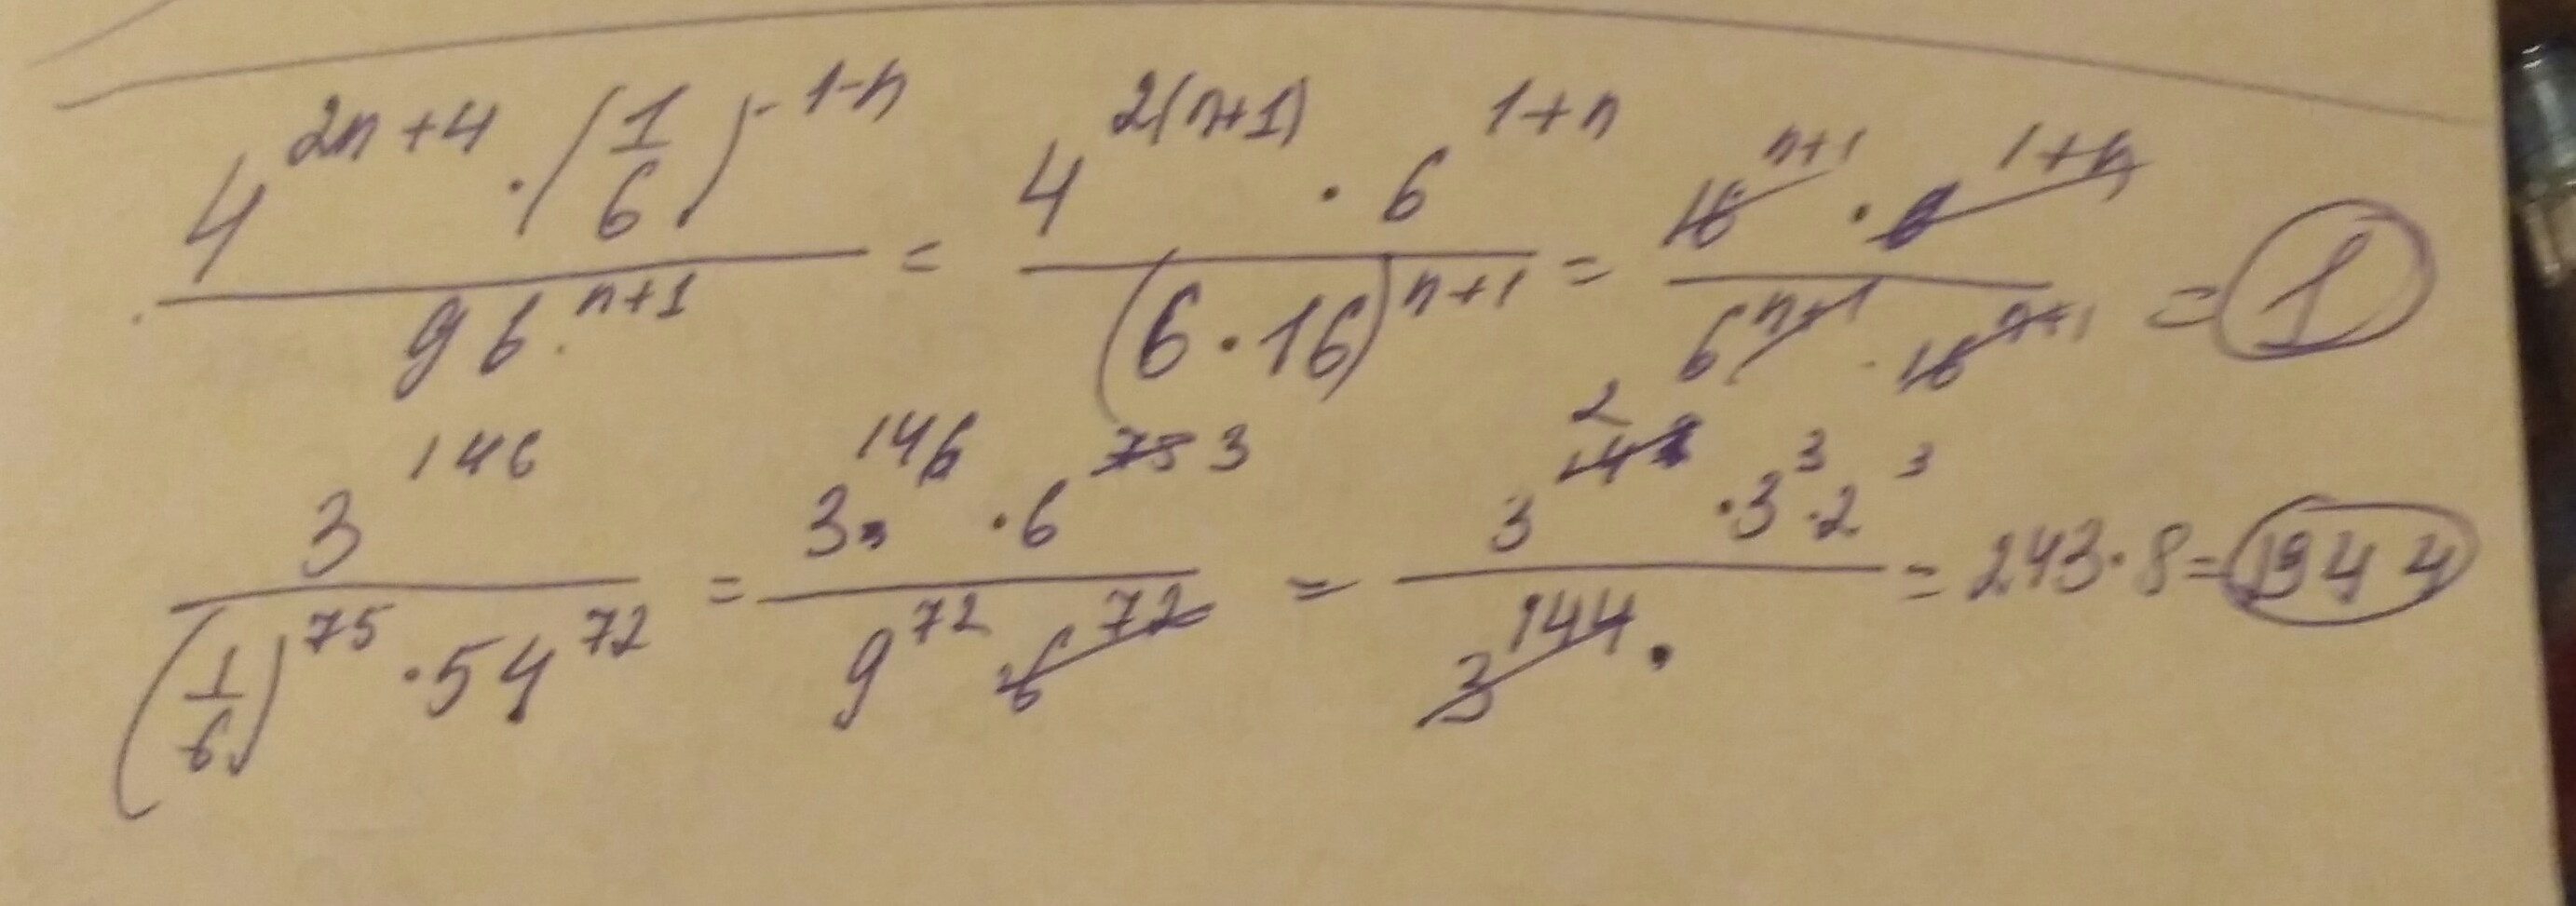 4^(2n+4) · (1/6)^(-1-n) / 96^(n+1) = 4^(2(n+1)) · 6^(1+n) / (6·16)^(n+1) = 16^(n+1) · 6^(1+n) / 6^(n+1) · 16^(n+1) = 1
3^146 / (1/6)^75 · 54^72 = 3^146 · 6^75 3 / 9^72 · 6^72 = 3^2 · 3^3 · 2^3 / 3^144 · = 243·8 = 1944